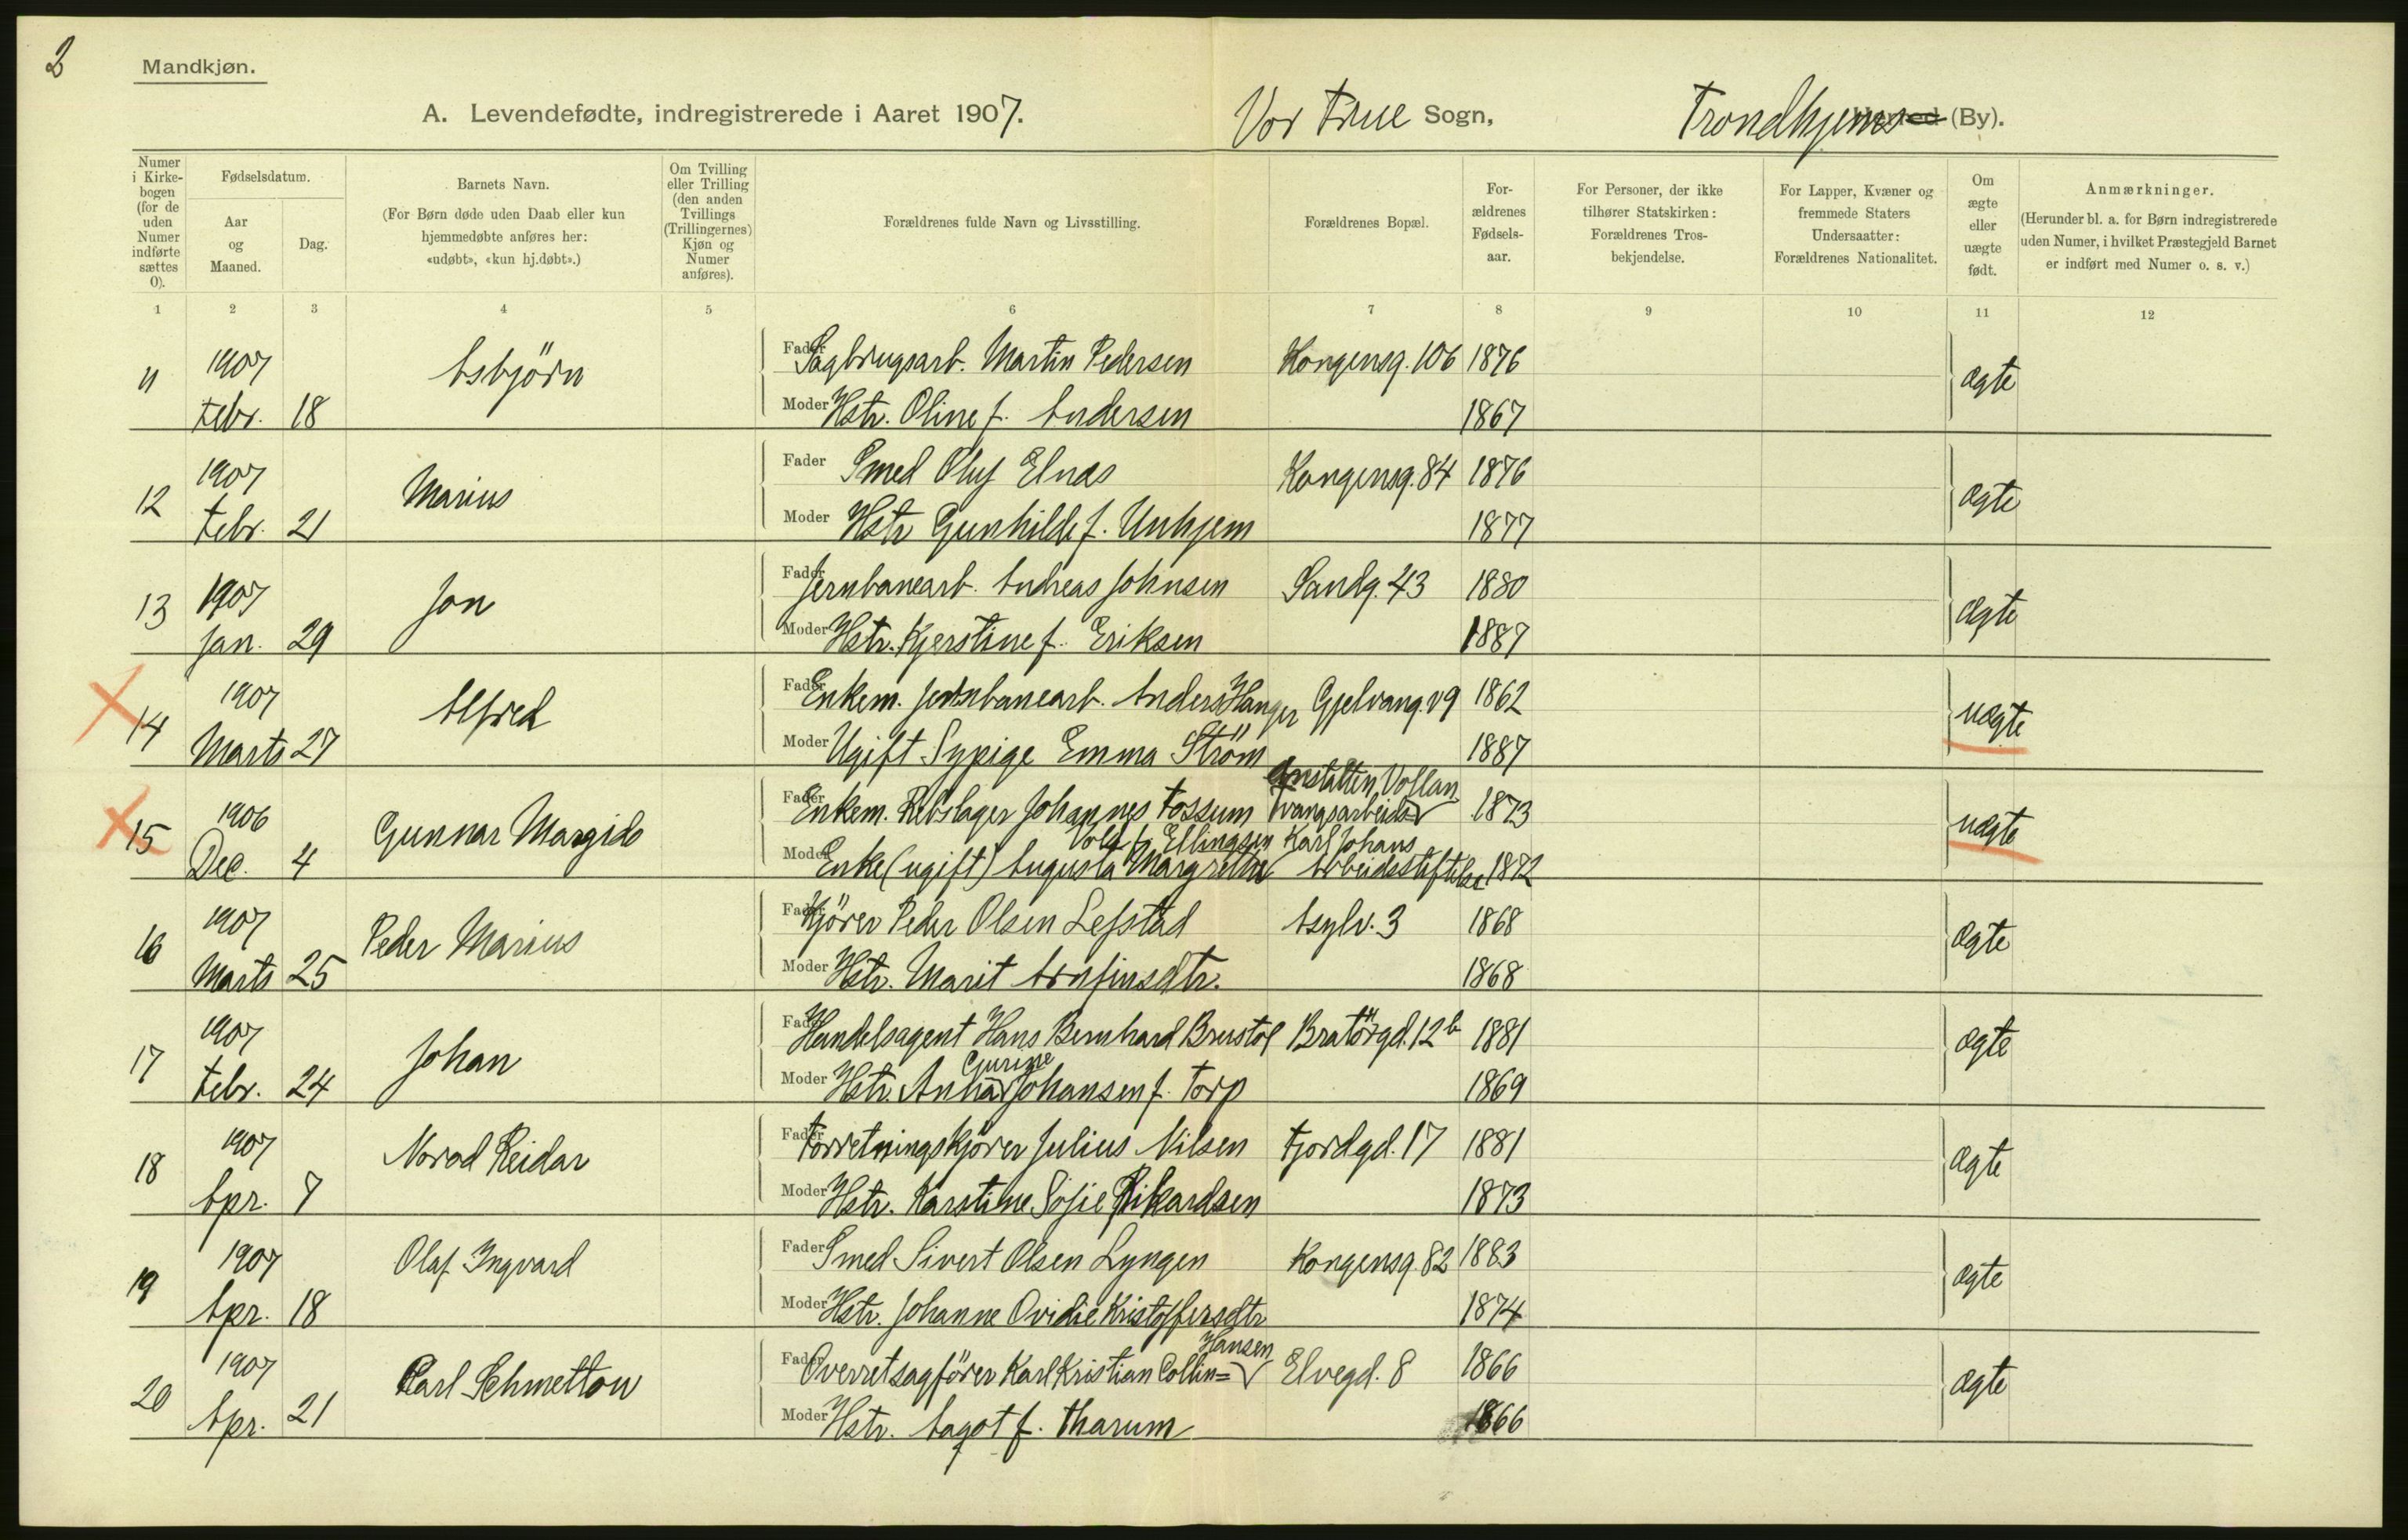 2
Mandkjøn.
A. Levendefødte, indregistrerede i Aaret 1907. Vor Frue Sogn, Trondhjems Herred (By).
Numer i Kirkebogen (for de uden Numer indførte sættes 0).
Fødselsdatum.
Aar og Maaned.
Dag.
Barnets Navn.
(For Børn døde uden Daab eller kun hjemmedøbte anføres her: «udøbt», «kun hj.døbt».)
Om Tvilling eller Trilling (den anden Tvillings (Trillingernes) Kjøn og Numer anføres).
Forældrenes fulde Navn og Livsstilling.
Forældrenes Bopæl.
Forældrenes Fødselsaar.
For Personer, der ikke tilhører Statskirken: Forældrenes Trosbekjendelse.
For Lapper, Kvæner og fremmede Staters Undersaatter: Forældrenes Nationalitet.
Om ægte eller uægte født.
Anmærkninger.
(Herunder bl. a. for Børn indregistrerede uden Numer, i hvilket Præstegjeld Barnet er indført med Numer o. s. v.)
1 2 3 4 5 6 7 8 9 10 11 12
11 1907 Febr. 18 Asbjörn
Fader Sagbrugsarb. Martin Pedersen Kongensg. 106 1876 ægte
Moder Hstr. Oline f. Andersen 1867
12 1907 Febr. 21 Marius
Fader Smed Oluf Elnæs Kongensg. 84 1876 ægte
Moder Hstr Gunhilde f. Unhjem 1877
13 1907 Jan. 29 Jon
Fader Jernbanearb. Andreas Johnsen Sandg. 43 1880 ægte
Moder Hstr. Kjerstine f. Eriksen 1887
14 1907 Marts 27 Alfred
Fader Enkem. Jernbanearb. Anders Hanger Gjelvang. v9 1862 uægte
Moder Ugift Sypige Emma Ström 1887
15 1906 Dec. 4 Gunnar Margido
Fader Enkem. Rebslager Johannes Fossum Tvangsarbeids anstalten, Vollan 1873 uægte
Moder Enke (ugift) Augusta Margrethe Vold f. Ellingsen Karl Johans Arbeidsstiftelse 1872
16 1907 Marts 25 Peder Marius
Fader Kjörer Peder Olsen Lefstad Asylv. 3 1868 ægte
Moder Hstr. Marit Arnfinsdtr. 1868
17 1907 Febr. 24 Johan
Fader Handelsagent Hans Bernhard Brustöl Bratörgd. 12b 1881 ægte
Moder Hstr. Anna Gurine Johansen f. Torp 1869
18 1907 Apr. 7 Norod Reidar
Fader Forretningskjörer Julius Nilsen Fjordgd. 17 1881 ægte
Moder Hstr. Karstine Sofie Rikardsen 1873
19 1907 Apr. 18 Olaf Ingvard
Fader Smed Sivert Olsen Lyngen Kongensg. 82 1883 ægte
Moder Hstr. Johanne Ovidie Kristoffersdtr 1874
20 1907 Apr. 21 Carl Schmettow
Fader Overretsagförer Karl Kristian Collin= Hansen Elvegd. 8 1866 ægte
Moder Hstr. Aagot f. Tharum 1866